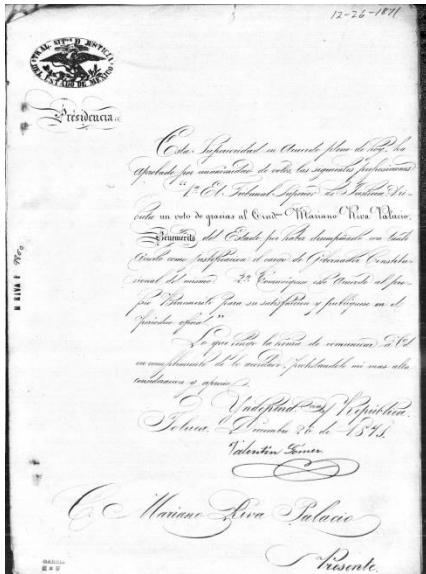 12-26-1871
TRAL. SUPOR. D JUSTICIA
DEL ESTADO DE MEXICO
Presidencia
Esta Superioridad en Acuerdo pleno de hoy, ha
aprobado por unanimidad de votos, las siguientes proposiciones
"1ª El Tribunal Superior de Justicia
un voto de gracias al Ciud. Mariano Riva Palacio,
Benemérito del Estado por haber desempeñado con tanto
acierto como justificacion el cargo de Gobernador Constitu-
cional del mismo. 2ª Comuniquese este Acuerdo al pro-
pio Benemerito para su satisfaccion y publiquese en el
Periodico oficial."
Lo que tengo la honra de comunicar á Ud
en cumplimiento de lo acordado, protestandole mi mas alta
consideracion y aprecio.
Yndepend. y República.
Toluca, Diciembre 26 de 1871.
Valentin Gomez
C. Mariano Riva Palacio
Presente.
M RIVA P
GARCIA